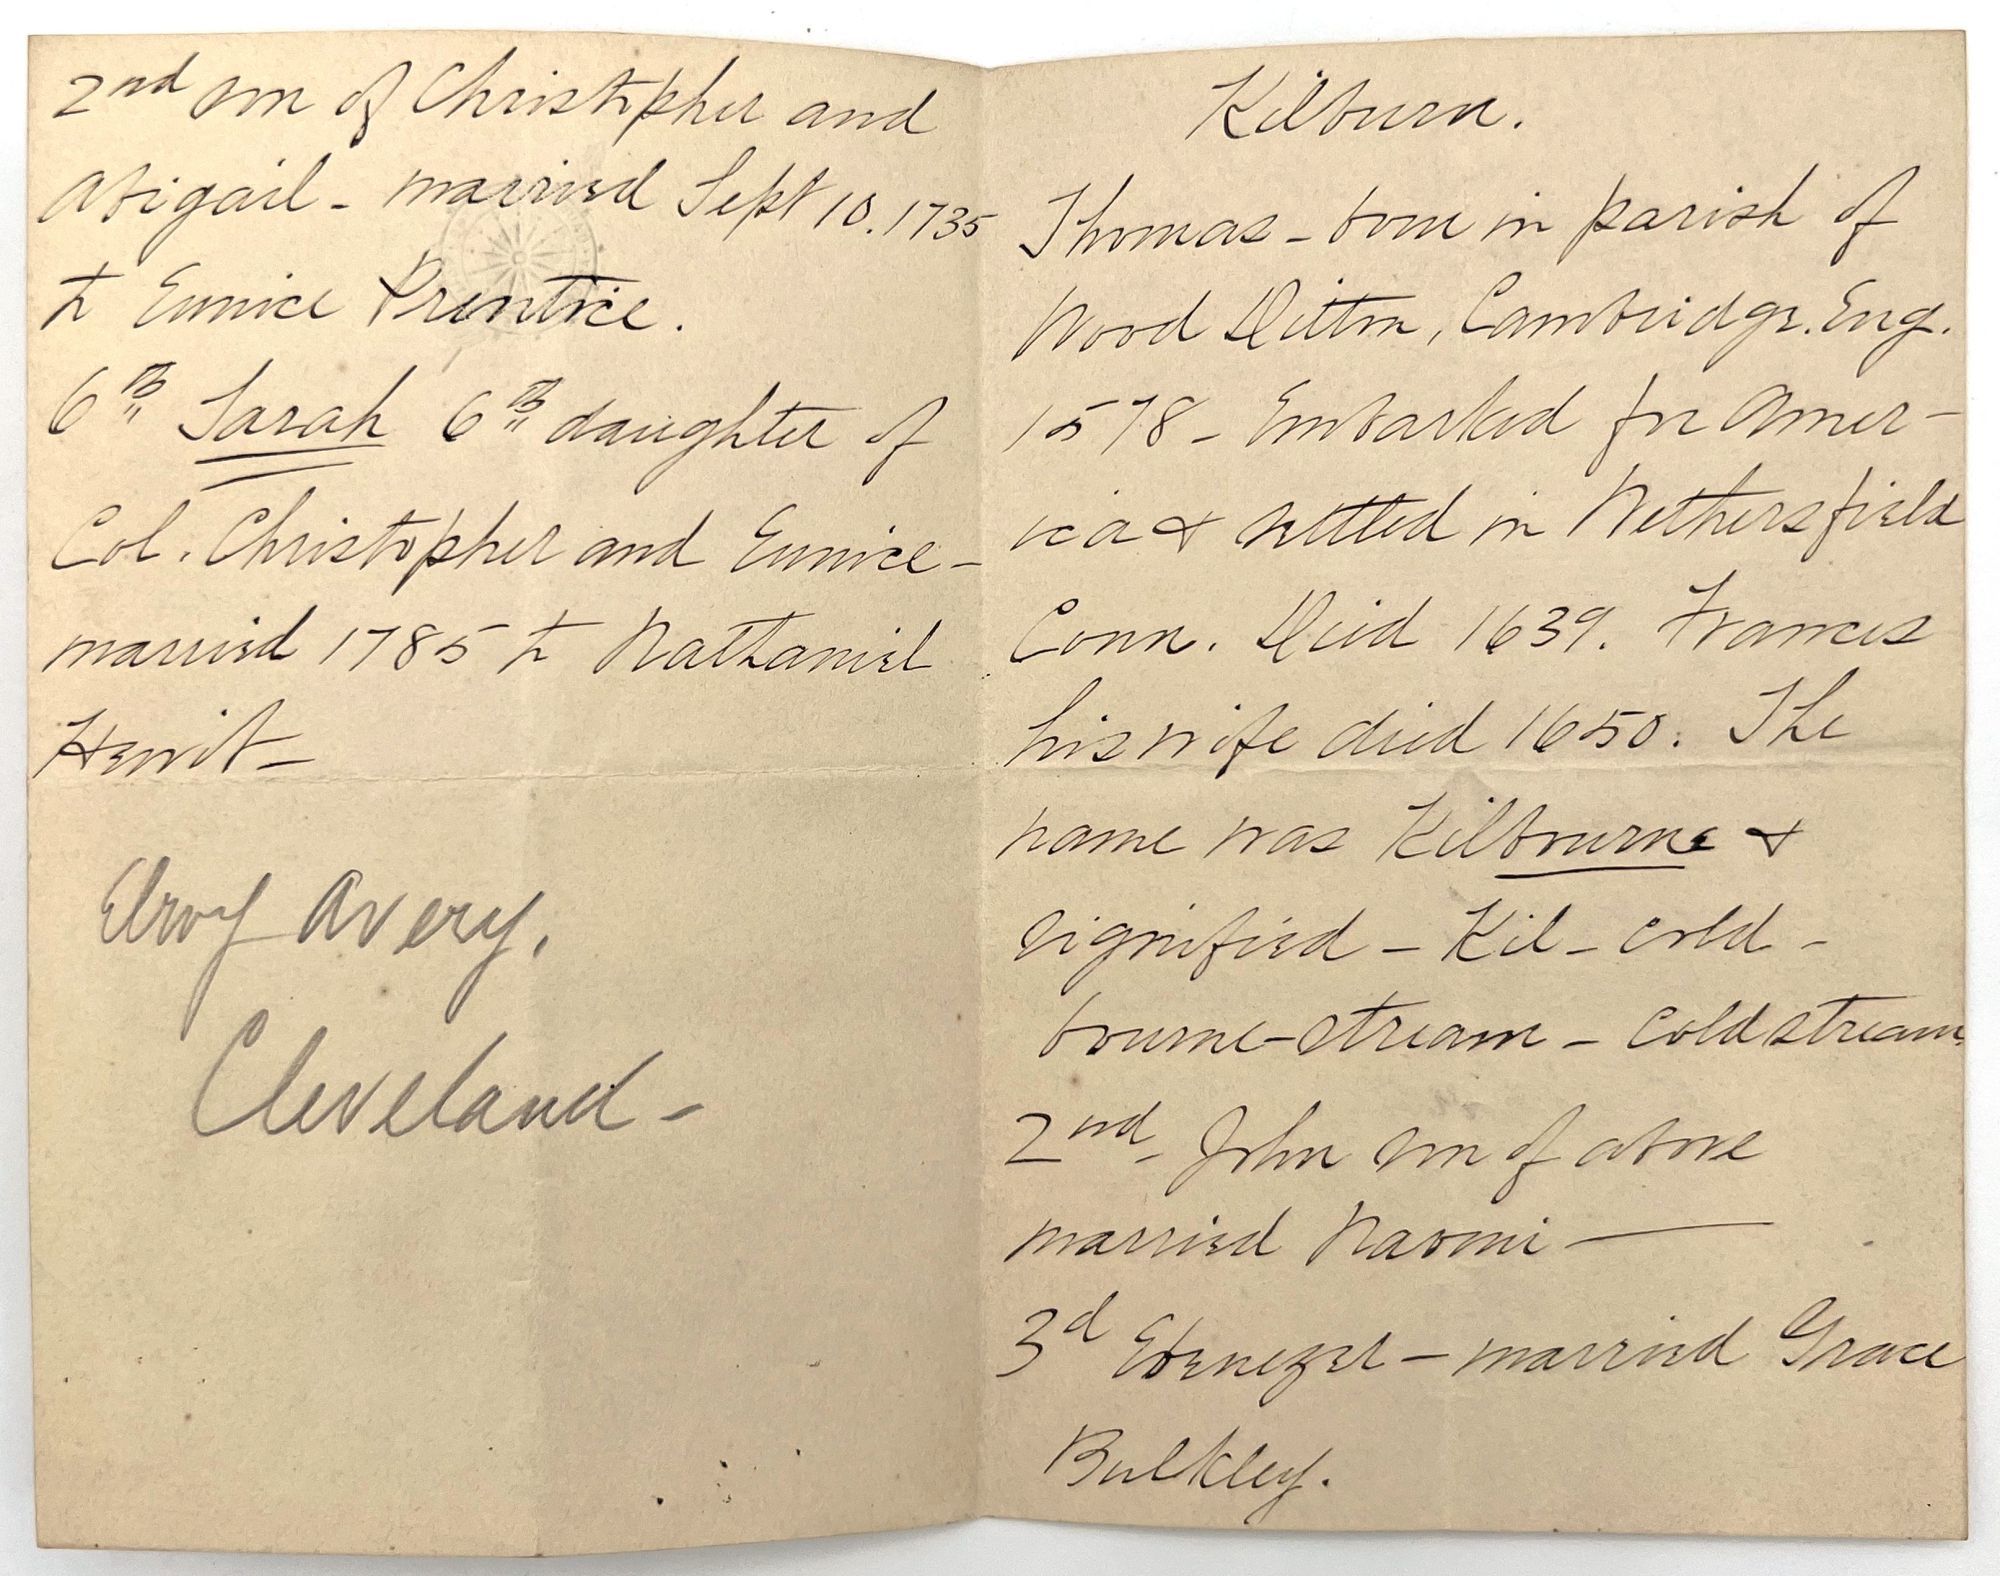 2nd son of Christopher and
Abigail - married Sept 10. 1735
to Eunice Prentice.
6th Sarah 6th daughter of
Col. Christopher and Eunice -
married 1785 to Nathaniel
Hewit -
Elroy Avery,
Cleveland -
Kilburn.
Thomas - born in parish of
Wood Ditton, Cambridge. Eng.
1578 - Embarked for Amer-
ica & settled in Wethersfield
Conn. Died 1639. Frances
his wife died 1650. The
name was Kilbourne &
signified - Kil - cold -
bourne - stream - Coldstream.
2nd - John son of above
married Naomi -
3d Ebenezer - married Grace
Bulkley.